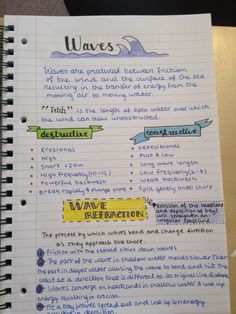 Waves
Waves are produced between friction
of the wind and the surface of the sea
resulting in the transfer of energy from the
moving air to moving water.
"Fetch" is the length of open water over which
the wind can blow uninterrupted.
destructive
constructive
• erosional
• High
• Short <20m
• High frequency (10-12)
• Powerful backwash
• break rapidly & plunge shore
• depositional
• Flat & low
• long wave length
• Low frequency (6-8)
• Weak backwash
• Spill gently onto shore
WAVE
REFRACTION
erosion of the headland
and deposition of bays
will straighten an
irregular coastline
The process by which waves bend and change direction
as they approach the shore.
Friction with the seabed slows down waves
The part of the wave in shallow water moves slower than
the part in deeper water causing the wave to bend and hit the
coast at a direction that is different to its original direction
Waves converge on headlands in shallow water & use up
energy resulting in erosion.
At a bay waves spread out and use up less energy
resulting in